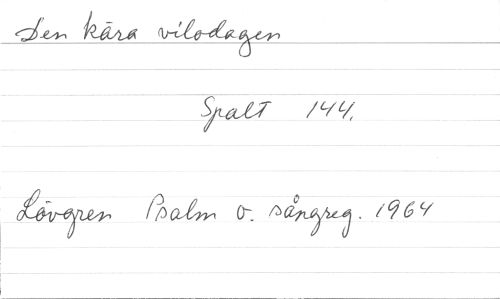 Den kära vilodagen
Spalt 144.
Lövgren Psalm o. sångreg. 1964